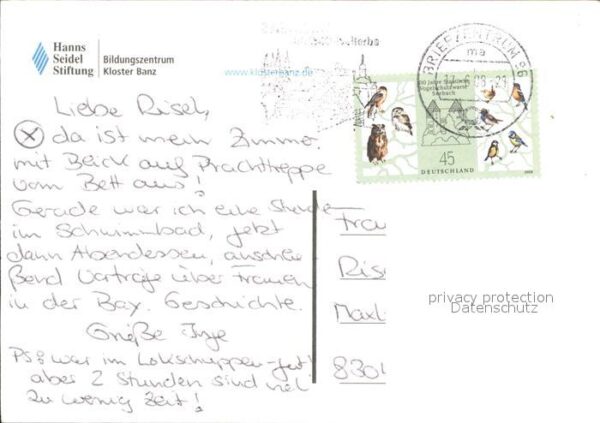 Hanns
Seidel
Stiftung
Bildungszentrum
Kloster Banz
www.klosterbanz.de
BRIEFZENTRUM 96
ma
100 Jahre Staatliche
Vogelschutzwarte
Seebach
45
DEUTSCHLAND
Liebe Risel,
da ist mein Zimmer
mit Blick auf Prachttreppe
vom Bett aus!
Gerade war ich eine Stunde
im Schwimmbad, jetzt
dann Abendessen, anschlie
ßend Vorträge über Frauen
in der Bay. Geschichte.
Grüße Inge
PS: war im Lokschuppen - gut!
aber 2 Stunden sind viel
zu wenig Zeit!
Frau
Rise
Maxl
830
privacy protection
Datenschutz